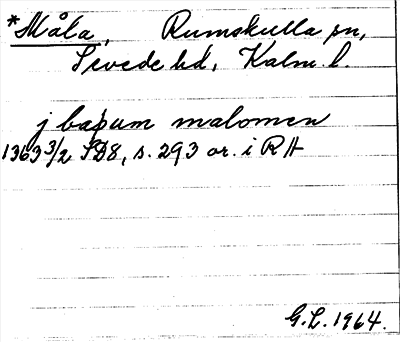 *Måla, Rumskulla sn,
Sevede hd, Kalm. l.
j bapum malomen
1363 3/2 SD8, s. 293 or. i RA
G.L. 1964.